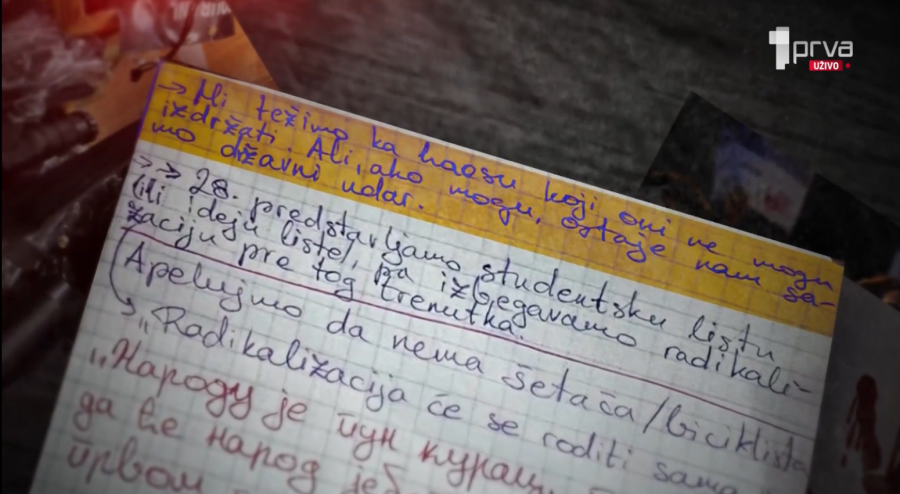 1prva
UŽIVO
→ Mi težimo ka haosu koji oni ne mogu
izdržati. Ali, ako mogu, ostaje nam sa-
mo državni udar.
→→ 28. predstavljamo studentsku listu
(ili ideju liste), pa izbjegavamo radikali-
zaciju pre tog trenutka.
Apelujmo da nema šetača/biciklista
→ „Radikalizacija će se roditi sama
„Народу је пун курац
да ће народ јеб
првом